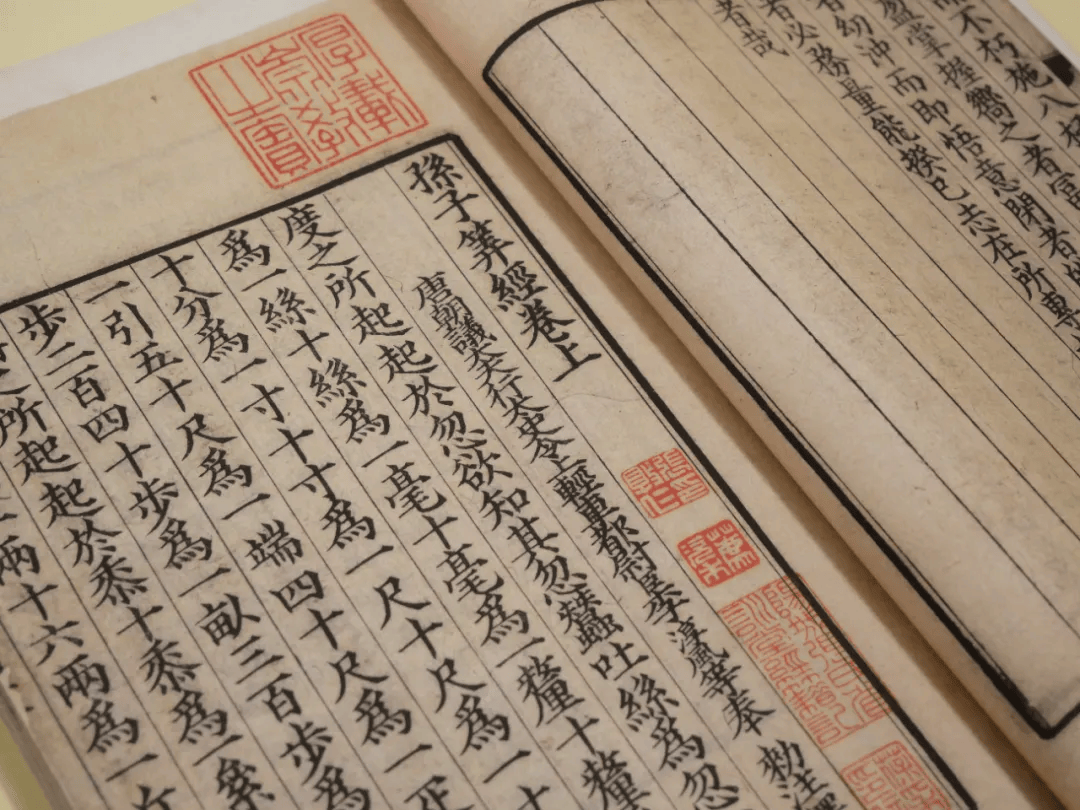 不朽施八
盈掌握嚮之者富
幼沖而即悟意閉者
者必務量能揆己志在所專
者哉
孫子筭經卷上
唐朝議大夫行太史令上輕車都尉臣李淳風等奉 勑注
度之所起起於忽欲知其忽蠶吐絲爲忽
爲一絲十絲爲一毫十毫爲一釐十釐
十分爲一寸十寸爲一尺十尺爲一
一引五十尺爲一端四十尺爲一疋
步二百四十步爲一畝三百步爲
所起起於黍十黍爲一絫
兩十六兩爲一斤